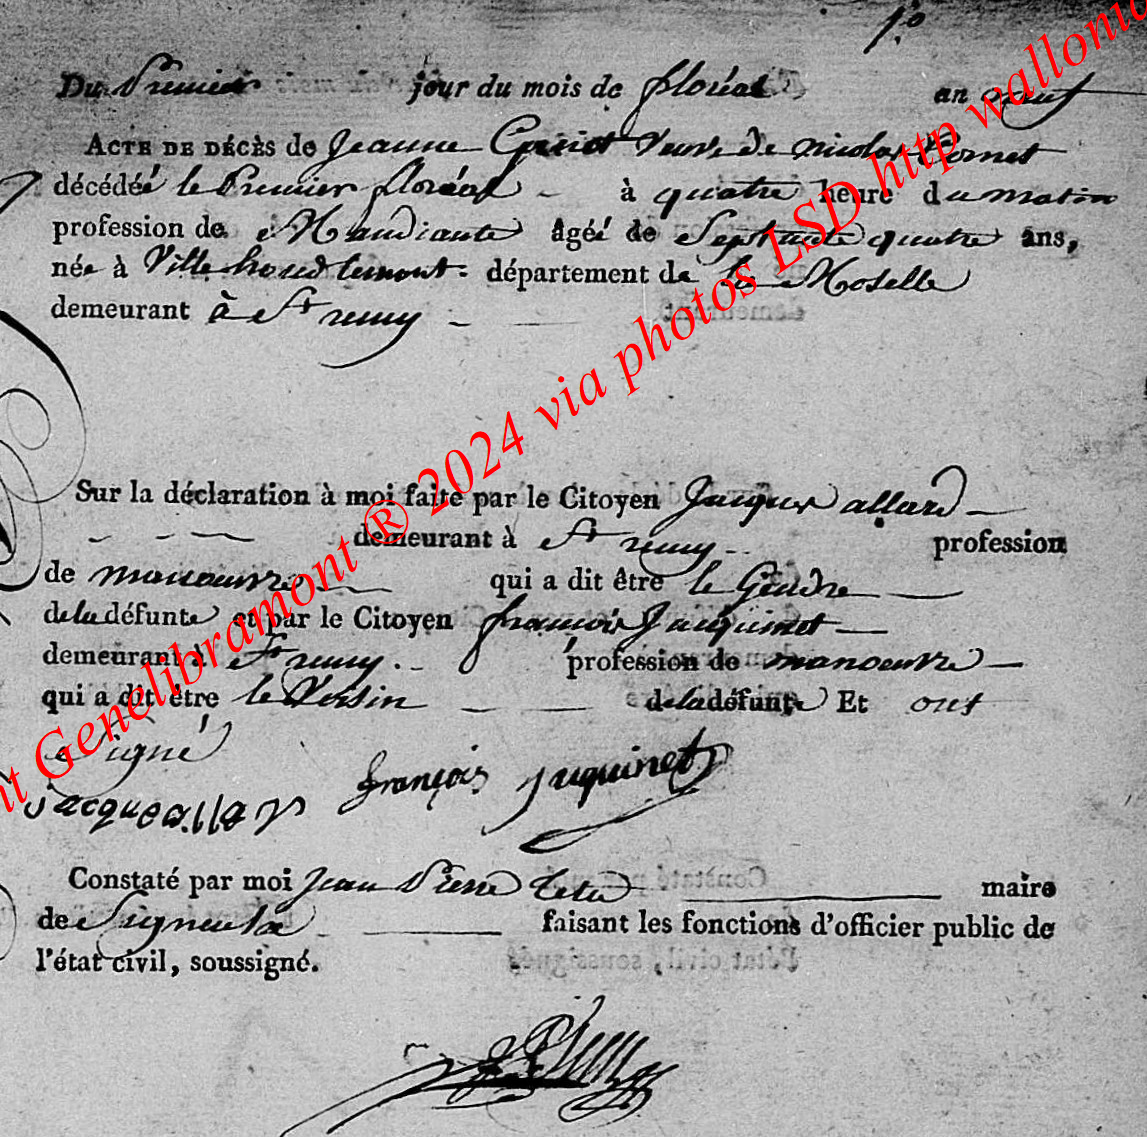 1.º
Du Premier jour du mois de floréal an neuf
ACTE DE DÉCÈS de Jeanne veuve de nicolas Cornet
décédéé le Premier floréal - à quatre heure du matin
profession de Mandiante âgéé de Septante quatre ans,
née à Ville houdlemont. département de la Moselle
demeurant à St remy -
Sur la déclaration à moi faite par le Citoyen Jacques allard -
demeurant à St remy - profession
de manoeuvre qui a dit être le Gendre
de la défunte et par le Citoyen françois Jacquinet
demeurant à St remy - profession de manoeuvre
qui a dit être le Voisin de la défunte Et ont
Signé
françois jaquinet
Constaté par moi Jean Pierre maire
de Signeulx faisant les fonctions d'officier public de
l'état civil, soussigné.
nt Genelibramont ® 2024 via photos LSD http wallonic